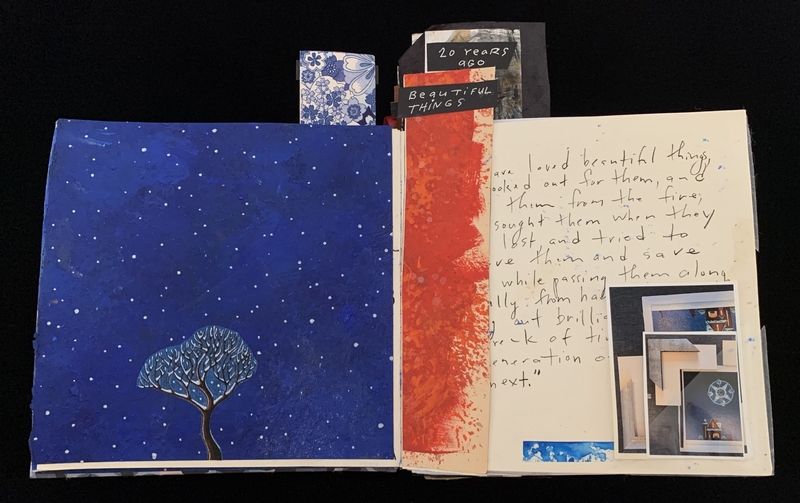 20 YEARS
AGO
BEAUTIFUL
THINGS
ave loved beautiful things,
ooked out for them, and
them from the fire,
sought them when they
lost, and tried to
ve them and save
while passing them along
lly from ha
out brilli
reck of ti
eneration o
next."